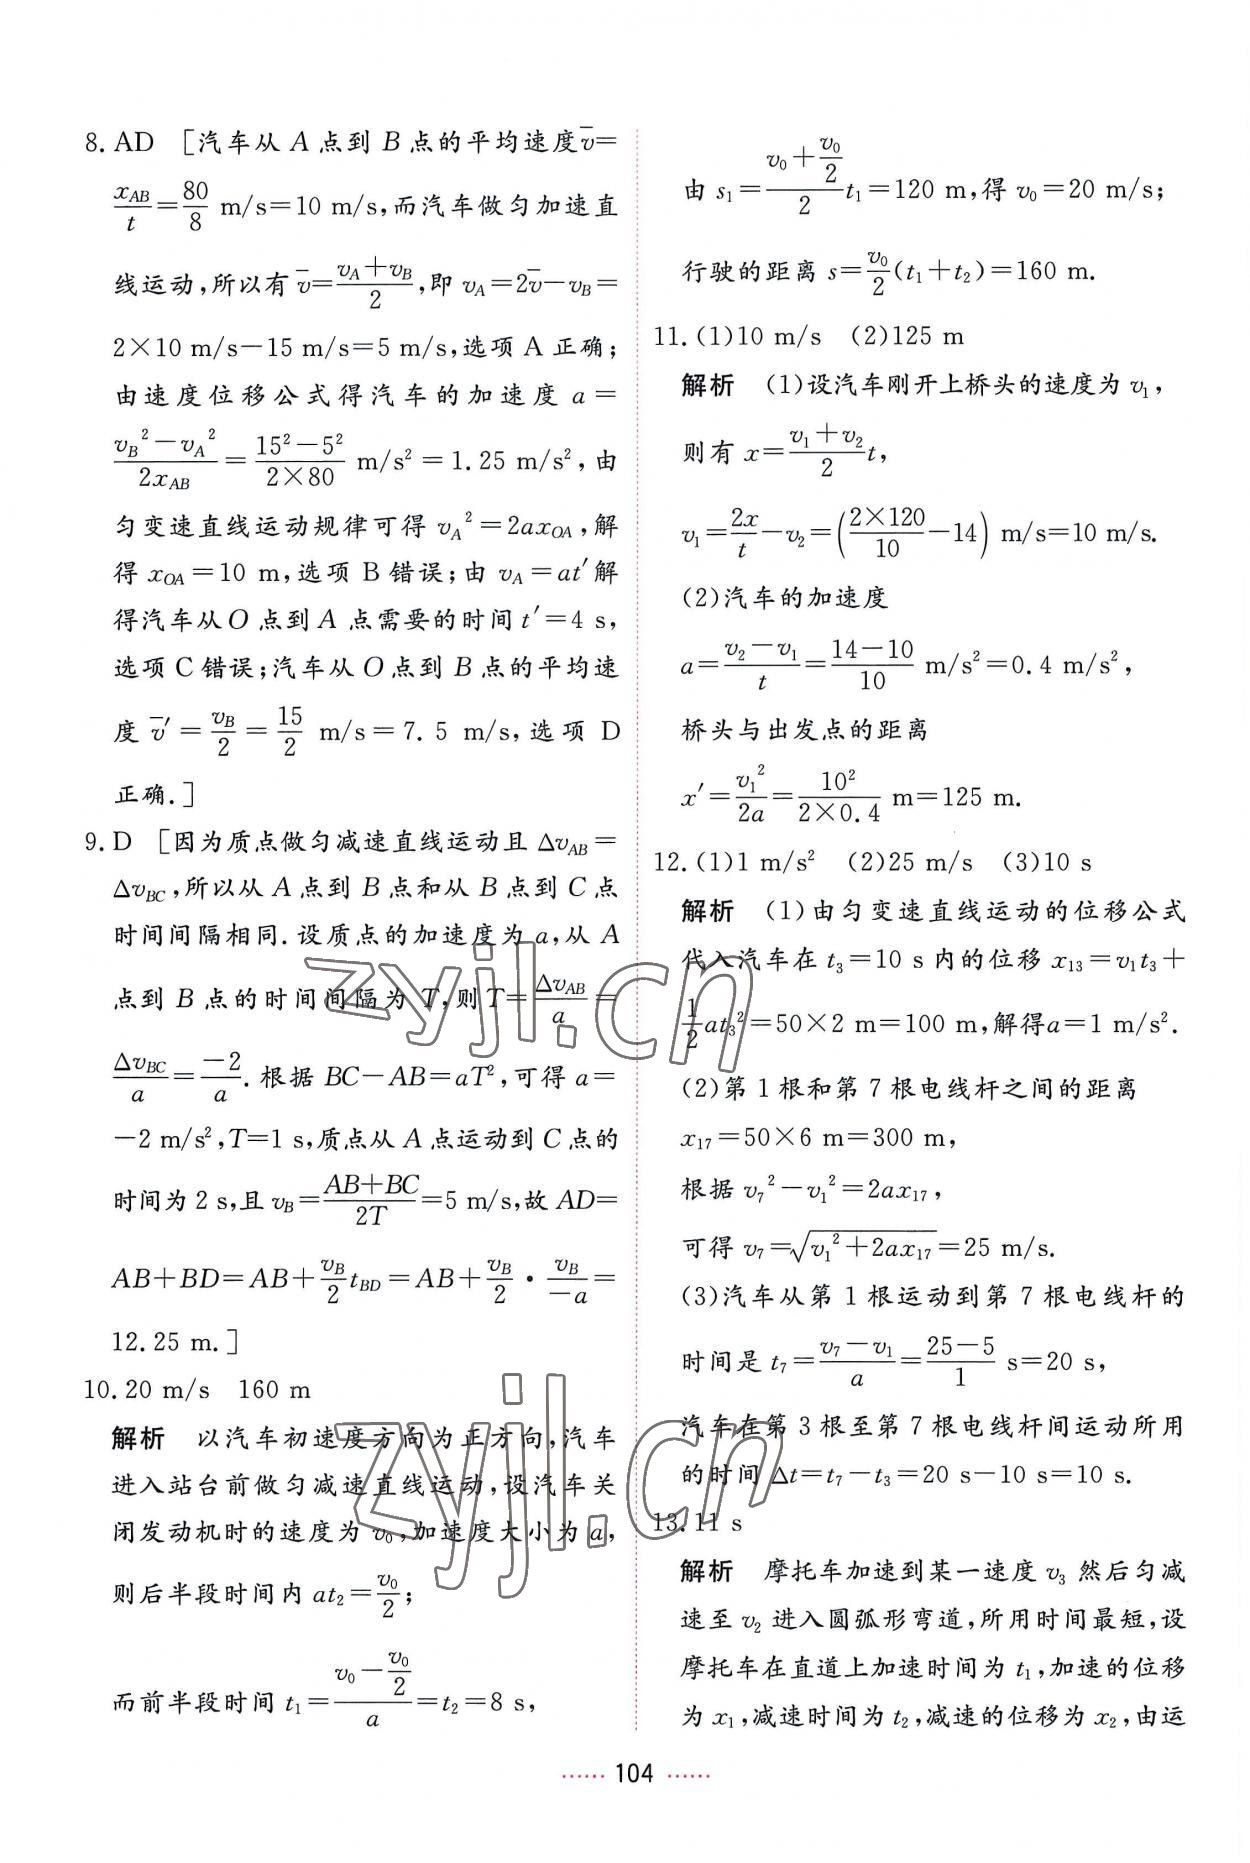 8. AD [汽车从 A 点到 B 点的平均速度 v̄=
x_AB/t = 80/8 m/s=10 m/s,而汽车做匀加速直
线运动,所以有 v̄=(v_A+v_B)/2,即 v_A=2v̄-v_B=
2×10 m/s-15 m/s=5 m/s,选项 A 正确;
由速度位移公式得汽车的加速度 a=
(v_B²-v_A²)/(2x_AB) = (15²-5²)/(2×80) m/s²=1.25 m/s²,由
匀变速直线运动规律可得 v_A²=2ax_OA,解
得 x_OA=10 m,选项 B 错误;由 v_A=at′解
得汽车从 O 点到 A 点需要的时间 t′=4 s,
选项 C 错误;汽车从 O 点到 B 点的平均速
度 v̄′=v_B/2=15/2 m/s=7.5 m/s,选项 D
正确.]
9. D [因为质点做匀减速直线运动且 Δv_AB=
Δv_BC,所以从 A 点到 B 点和从 B 点到 C 点
时间间隔相同.设质点的加速度为 a,从 A
点到 B 点的时间间隔为 T,则 T=Δv_AB/a=
Δv_BC/a=-2/a.根据 BC-AB=aT²,可得 a=
-2 m/s²,T=1 s,质点从 A 点运动到 C 点的
时间为 2 s,且 v_B=(AB+BC)/(2T)=5 m/s,故 AD=
AB+BD=AB+(v_B/2)t_BD=AB+v_B/2·v_B/(-a)=
12.25 m.]
10. 20 m/s 160 m
解析 以汽车初速度方向为正方向,汽车
进入站台前做匀减速直线运动,设汽车关
闭发动机时的速度为 v₀,加速度大小为 a,
则后半段时间内 at₂=v₀/2;
而前半段时间 t₁=(v₀-v₀/2)/a=t₂=8 s,
由 s₁=((v₀+v₀/2)/2)t₁=120 m,得 v₀=20 m/s;
行驶的距离 s=(v₀/2)(t₁+t₂)=160 m.
11. (1)10 m/s (2)125 m
解析 (1)设汽车刚开上桥头的速度为 v₁,
则有 x=((v₁+v₂)/2)t,
v₁=2x/t-v₂=((2×120)/10-14) m/s=10 m/s.
(2)汽车的加速度
a=(v₂-v₁)/t=(14-10)/10 m/s²=0.4 m/s²,
桥头与出发点的距离
x′=v₁²/(2a)=10²/(2×0.4) m=125 m.
12. (1)1 m/s² (2)25 m/s (3)10 s
解析 (1)由匀变速直线运动的位移公式
代入汽车在 t₃=10 s 内的位移 x₁₃=v₁t₃+
(1/2)at₃²=50×2 m=100 m,解得a=1 m/s².
(2)第 1 根和第 7 根电线杆之间的距离
x₁₇=50×6 m=300 m,
根据 v₇²-v₁²=2ax₁₇,
可得 v₇=√(v₁²+2ax₁₇)=25 m/s.
(3)汽车从第 1 根运动到第 7 根电线杆的
时间是 t₇=(v₇-v₁)/a=(25-5)/1 s=20 s,
汽车在第 3 根至第 7 根电线杆间运动所用
的时间 Δt=t₇-t₃=20 s-10 s=10 s.
13. 11 s
解析 摩托车加速到某一速度 v₃ 然后匀减
速至 v₂ 进入圆弧形弯道,所用时间最短,设
摩托车在直道上加速时间为 t₁,加速的位移
为 x₁,减速时间为 t₂,减速的位移为 x₂,由运
zyjl.cn
zyjl.cn
······ 104 ······